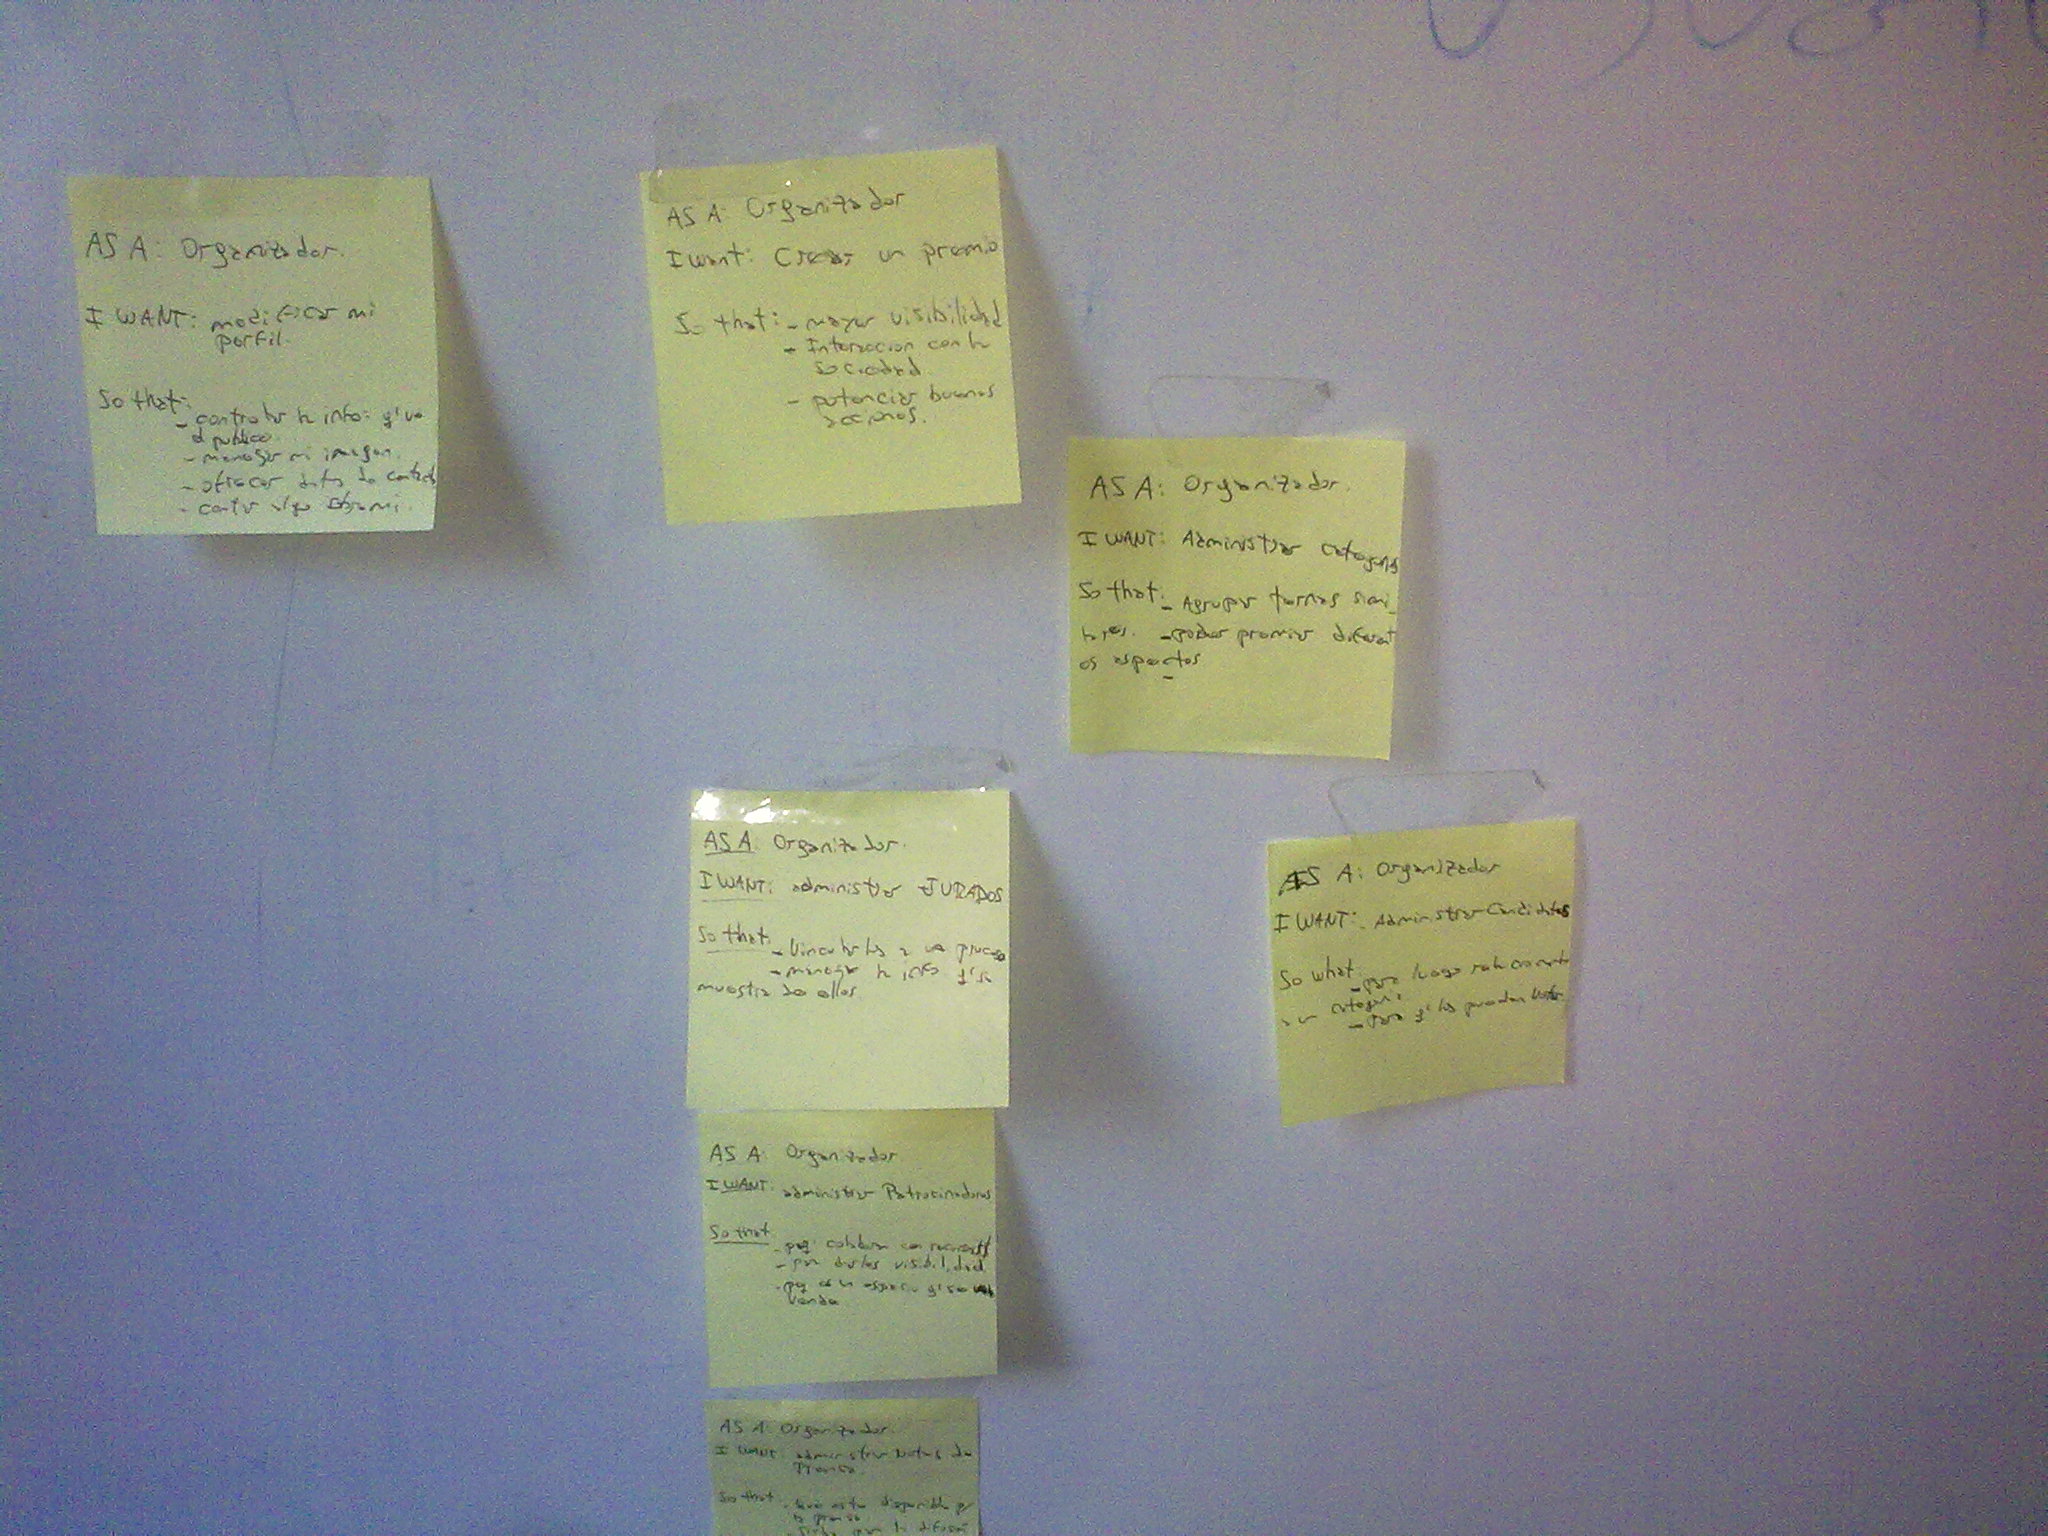 AS A: Organizador.
I WANT: modificar mi
perfil.
So that:
- controlar la info: q' ve
el publico.
- manegar mi imagen.
- ofrecer datos de contacto
- contar algo sobre mi.
AS A: Organizador
I want: Crear un premio
So that: - mayor visibilidad
- Interaccion con la
sociedad.
- potenciar buenas
acciones.
AS A: Organizador.
I WANT: Administrar categorias
So that: - Agrupar ternas simi_
lares. - poder premiar diferent
es aspectos
-
AS A: Organizador.
I WANT: administrar JURADOS
So that: - Vincularlos a un proceso
- manegar la info q' se
muestra de ellos.
AS A: Organizador
I WANT: - Administrar Candidatos
So what: - para luego
a un categori
- para q' los puedan
AS A: Organizador
I WANT: administrar Patrocinadores
So that
- pq' colaboran con
- por darles visibilidad
- pq es un espacio q' se
vende
AS A: Organizador.
I WANT: administrar Notas de
Prensa.
So that: - disponible p/
la prensa